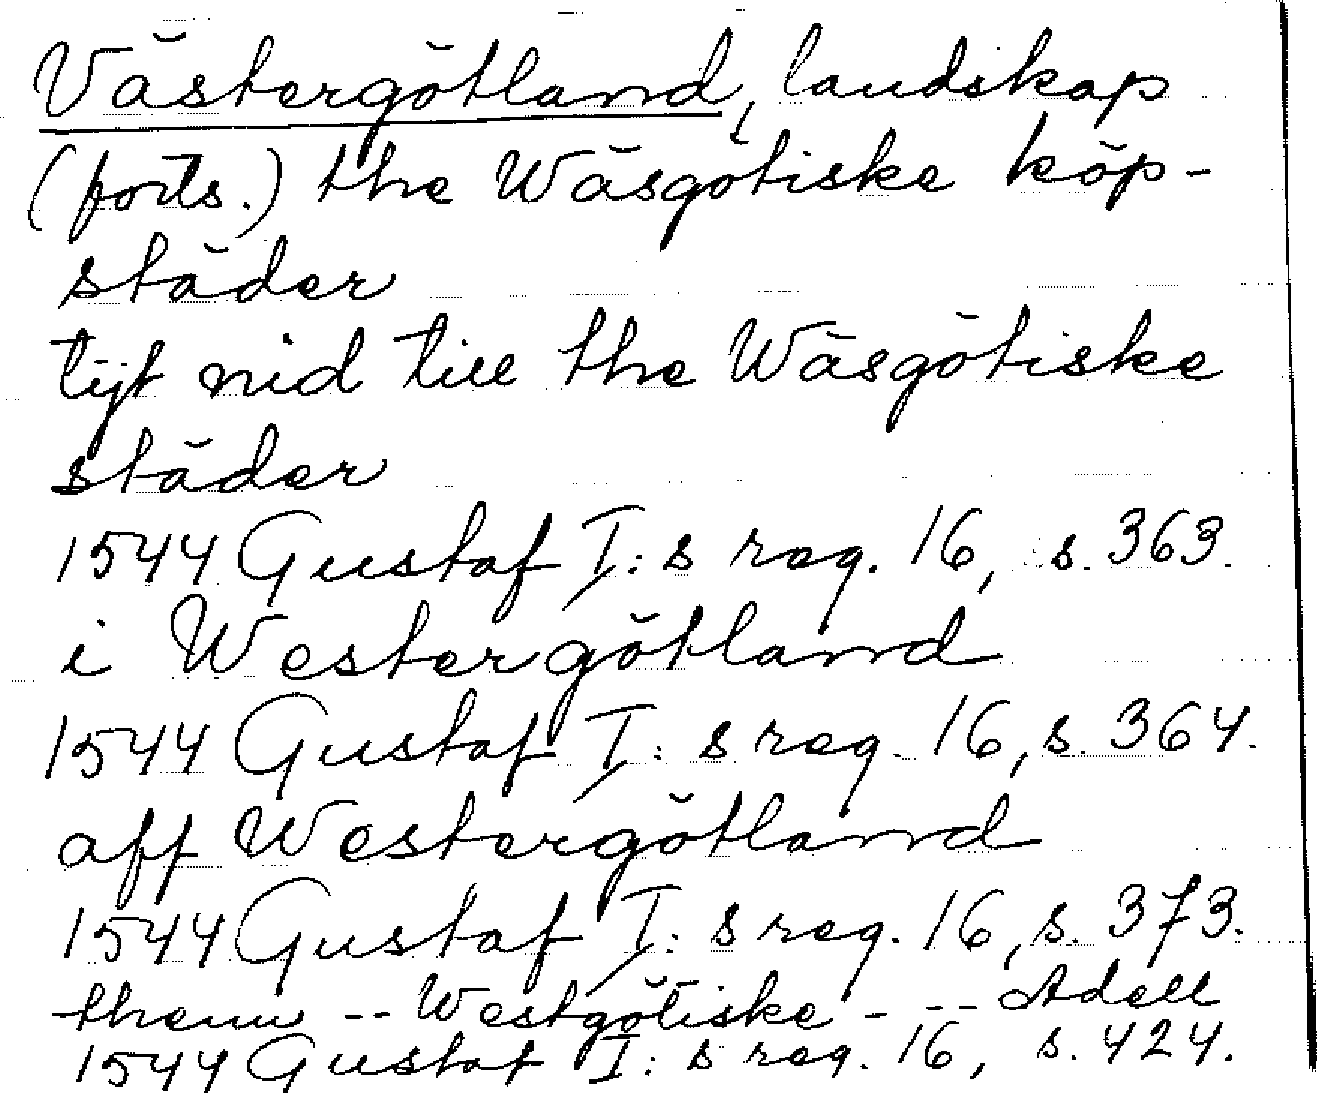 Västergötland, landskap
(forts.) the Wäsgötiske köp-
städer
tijt nid till the Wäsgötiske
städer
1544 Gustaf I:s reg. 16, s. 363.
i Westergötland
1544 Gustaf I:s reg. 16, s. 364.
aff Westergötland
1544 Gustaf I:s reg. 16, s. 373.
thenn -- Westgötiske - -- Adell
1544 Gustaf I:s reg. 16, s. 424.